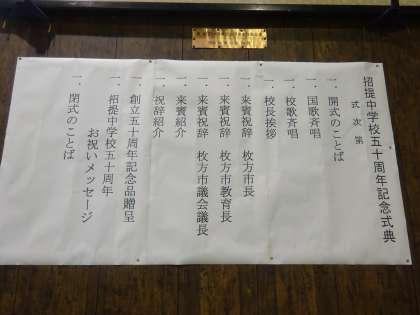 招提中学校五十周年記念式典
式次第
一．開式のことば
一．国歌斉唱
一．校歌斉唱
一．校長挨拶
一．来賓祝辞　枚方市長
一．来賓祝辞　枚方市教育長
一．来賓祝辞　枚方市議会議長
一．来賓紹介
一．祝辞紹介
一．創立五十周年記念品贈呈
一．招提中学校五十周年
お祝いメッセージ
一．閉式のことば